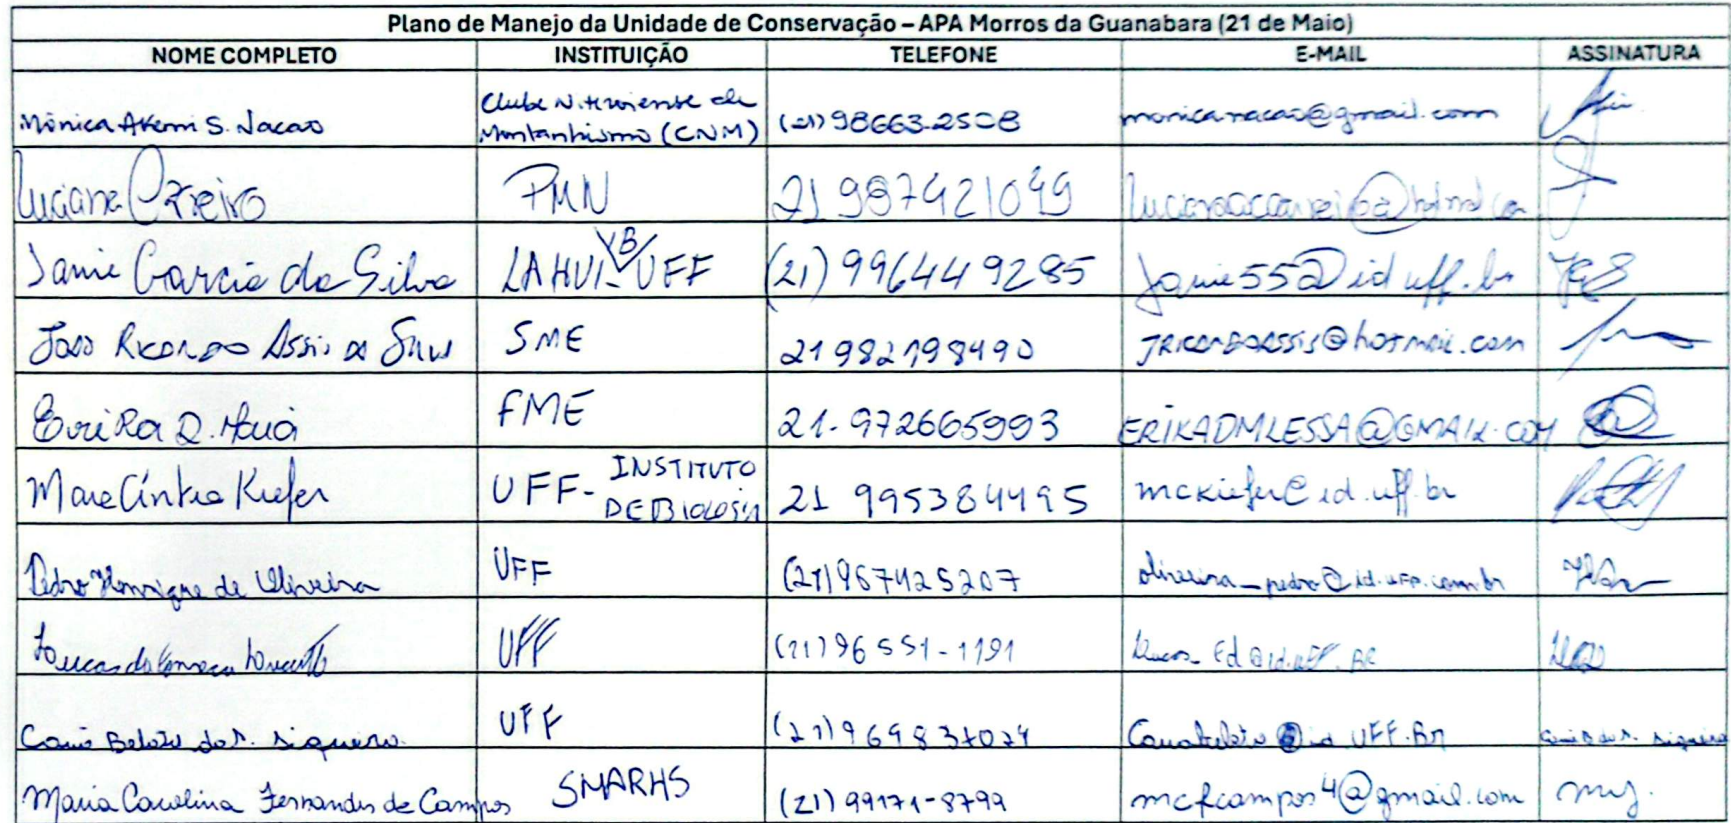 Plano de Manejo da Unidade de Conservação – APA Morros da Guanabara (21 de Maio)
NOME COMPLETO INSTITUIÇÃO TELEFONE E-MAIL ASSINATURA
Mônica Akemi S. Nacao Clube Niteroiense de Montanhismo (CNM) (21) 98663-2508 monicanacao@gmail.com
Luciana PMN 21 987421049
Janie Garcia da Silva LAHVI-IB/UFF (21) 996449285 janie55@id.uff.br JGS
João Ricardo Assis da Silva SME 21 982198490 JRICARDOASSIS@hotmail.com
Erika D. Mauá FME 21-972665993 ERIKADMLESSA@GMAIL.COM
Mara Cíntia Kiefer UFF- INSTITUTO DE BIOLOGIA 21 995384495 mckiefer@id.uff.br
Pedro Henrique de Oliveira UFF (21) 967425207 oliveira_pedro@id.uff.com.br
Lucas da Fonseca UFF (21) 96551-1191
Caio Beloto dos S. Siqueira. UFF (21) 969837024 @id.UFF.Br
Maria Carolina Fernandes de Campos SMARHS (21) 99171-8799 mcfcampos4@gmail.com